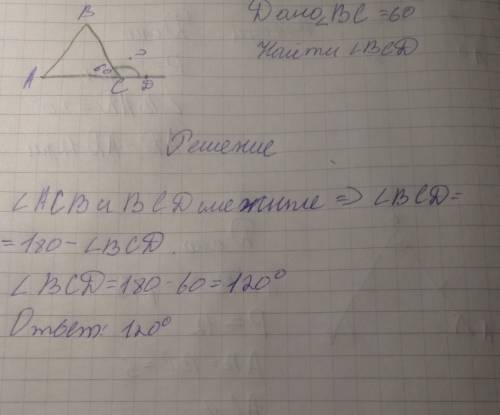 B
Дано ∠BC = 60
Найти ∠BCD
A 60 ? C D
Решение
∠ACB и BCD смежные ⇒ ∠BCD =
= 180 - ∠BCD.
∠BCD = 180 - 60 = 120°
Ответ: 120°